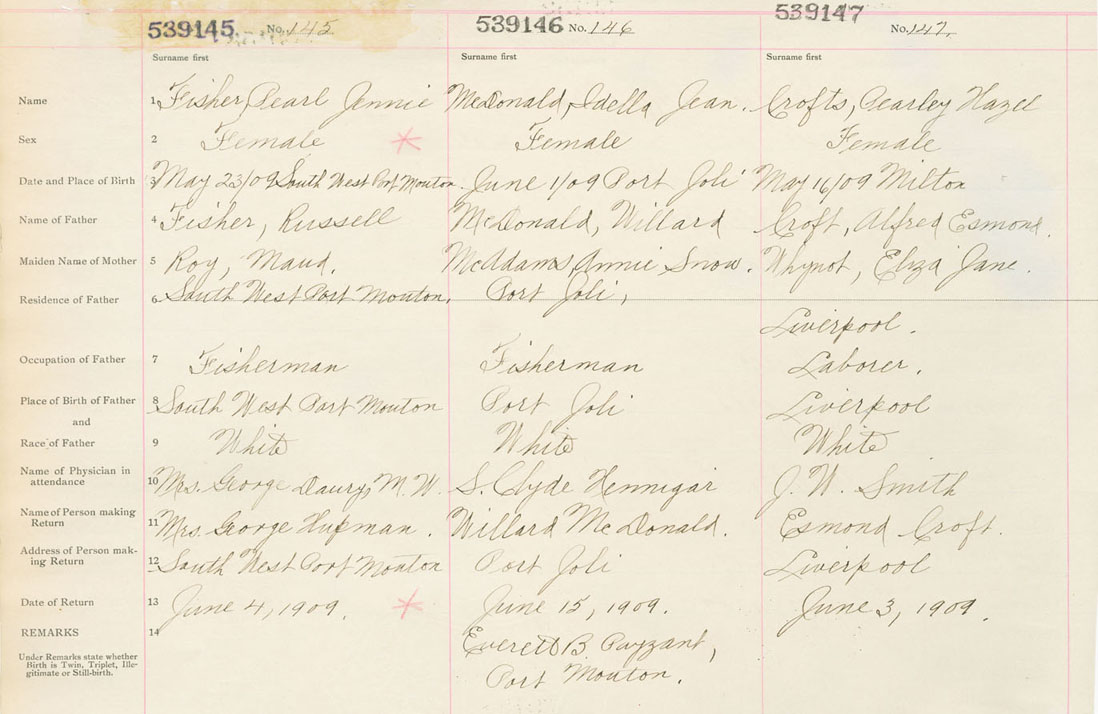 539145 No. 145 539146 No. 146 539147 No. 147.
Surname first Surname first Surname first
Name 1 Fisher, Pearl Jennie McDonald, Idella Jean. Crofts, Pearley Hazel
Sex 2 Female Female Female
Date and Place of Birth 3 May 23/09 South West Port Mouton. June 1/09 Port Joli May 16/09 Milton
Name of Father 4 Fisher, Russell McDonald, Willard Croft, Alfred Esmond.
Maiden Name of Mother 5 Roy, Maud. McAdams, Annie Snow. Whynot, Eliza Jane.
Residence of Father 6 South West Port Mouton. Port Joli, Liverpool.
Occupation of Father 7 Fisherman Fisherman Laborer.
Place of Birth of Father 8 South West Port Mouton Port Joli Liverpool
and
Race of Father 9 White White White
Name of Physician in
attendance 10 Mrs. George Daury, M.W. S. Clyde Hennigar J. W. Smith
Name of Person making
Return 11 Mrs. George Hufman. Willard McDonald. Esmond Croft.
Address of Person mak-
ing Return 12 South West Port Mouton Port Joli Liverpool
Date of Return 13 June 4, 1909. June 15, 1909. June 3, 1909.
REMARKS 14 Everett B. Puyzant,
Under Remarks state whether
Birth is Twin, Triplet, Ille-
gitimate or Still-birth.
Port Mouton.